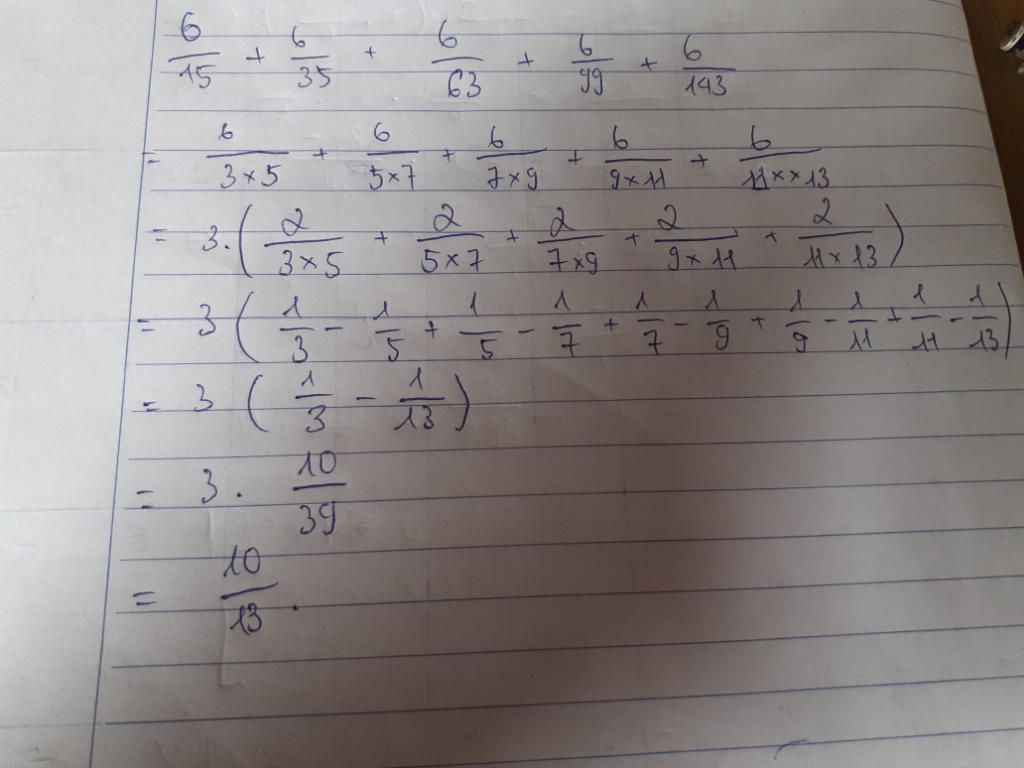 6/15 + 6/35 + 6/63 + 6/99 + 6/143
= 6/3×5 + 6/5×7 + 6/7×9 + 6/9×11 + 6/11××13
= 3.(2/3×5 + 2/5×7 + 2/7×9 + 2/9×11 + 2/11×13)
= 3 (1/3 - 1/5 + 1/5 - 1/7 + 1/7 - 1/9 + 1/9 - 1/11 + 1/11 - 1/13)
= 3 (1/3 - 1/13)
= 3 . 10/39
= 10/13.